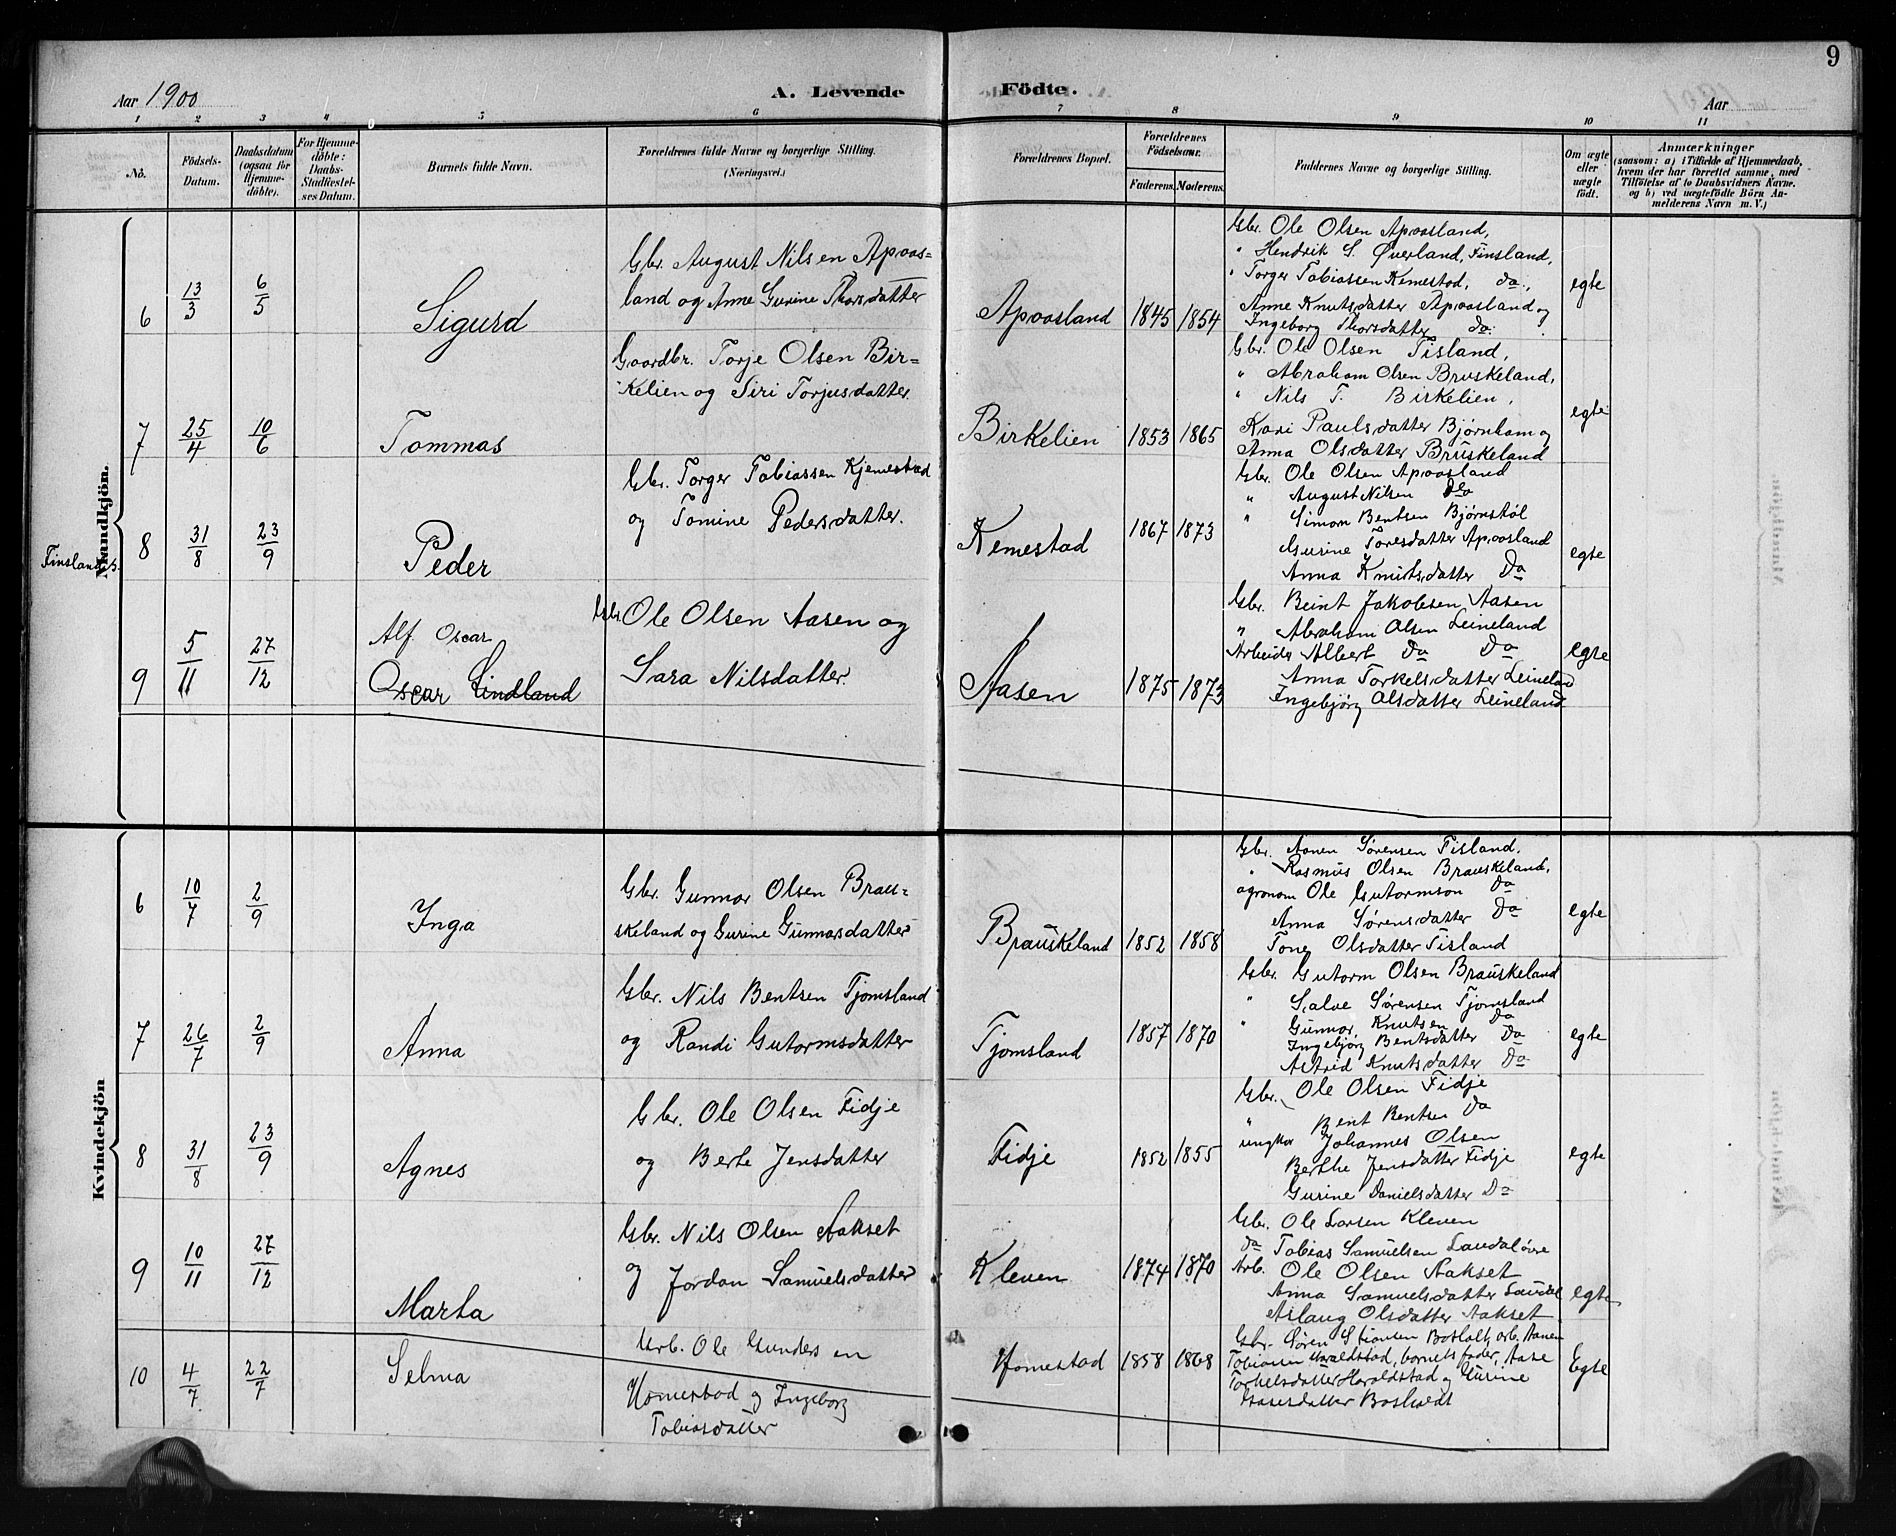 9
Aar 1900
A. Levende Födte.
Aar
1 2 3 4 5 6 7 8 9 10 11
No.
Födsels-Datum.
Daabsdatum (ogsaa for Hjemmedöbte).
For Hjemmedöbte: Daabs-Stadfæstelses Datum.
Barnets fulde Navn.
Forældrenes fulde Navne og borgerlige Stilling. (Næringsvei.)
Forældrenes Bopæl.
Forældrenes Födselsaar.
Faderens. Moderens.
Faddernes Navne og borgerlige Stilling.
Om ægte eller uægte födt.
Anmærkninger
(saasom: a) i Tilfælde af Hjemmedaab,
hvem der har forrettet samme, med
Tilföielse af to Daabsvidners Navne.
og b) ved uægtefödte Börn An-
melderens Navn m. V.)
Mandkjön.
Finsland s.
6 13/3 6/5 Sigurd
Gbr. August Nilsen Apaas=
land og Anne Gurine Thorsdatter
Apaasland 1845 1854
Gbr. Ole Olsen Apaasland,
" Hendrik S. Øverland, Finsland,
" Torger Tobiassen Kemestad, do.,
Anne Knutsdatter Apaasland og
Ingeborg Thorsdatter do.
egte
7 25/4 10/6 Tommas
Gaardbr. Torje Olsen Bir=
kelien og Siri Torjusdatter
Birkelien 1853 1865
Gbr. Ole Olsen Tisland,
" Abraham Olsen Bruskeland,
" Nils T. Birkelien,
Kari Paulsdatter Bjørnham og
Anna Olsdatter Bruskeland
egte
8 31/8 23/9 Peder
Gbr. Torger Tobiassen Kjemestad
og Tomine Pedersdatter.
Kemestad 1867 1873
Gbr. Ole Olsen Apaasland
" August Nilsen Do
" Simon Bentsen Bjørnstøl
Gurine Toresdatter Apaasland
Anna Knutsdatter Do
egte
9 5/11 27/12 Alf Oscar
Oscar Lindland
Gbr. Ole Olsen Aasen og
Sara Nilsdatter.
Aasen 1875 1873
Gbr. Beint Jakobsen Aasen
" Abraham Olsen Leineland
Arbeider Albert Do Do
Anna Torkelsdatter Leineland
Ingebjørg Olsdatter Leineland
egte
Kvindekjön
6 10/7 2/9 Inga
Gbr. Gunnar Olsen Brau=
skeland og Gurine Gunnarsdatter
Brauskeland 1852 1858
Gbr. Aanen Sørensen Tisland.
" Rasmus Olsen Brauskeland,
agronom Ole Gutormson Do
Anna Sørensdatter Do
Tone Olsdatter Tisland
egte
7 26/7 2/9 Anna
Gbr. Nils Bentsen Tjomsland
og Randi Gutormsdatter
Tjomsland 1857 1870
Gbr. Gutorm Olsen Brauskeland
" Salve Sørensen Tjomsland
" Gunnar Knutsen Do
Ingebjørg Bentsdatter Do
Astrid Knutsdatter Do
egte
8 31/8 23/9 Agnes
Gbr. Ole Olsen Fidje
og Berte Jensdatter
Fidje 1852 1855
Gbr. Ole Olsen Fidje
" Bent Bentsen Do
ungkar Johannes Olsen
Berthe Jensdatter Fidje
Gurine Danielsdatter Do
egte
9 10/11 27/12 Marta
Gbr. Nils Olsen Aakset
og Jordan Samuelsdatter
Kleven 1874 1870
Gbr. Ole Larsen Kleven
Do Tobias Samuelsen Laudaløvre
Arb. Ole Olsen Aakset
Anna Samuelsdatter Laudal
Aslaug Olsdatter Aakset
egte
10 4/7 22/7 Selma
Arb. Ole Gundersen
Homestad og Ingeborg
Tobiasdatter
Homestad 1858 1868
Gbr. Søren Stiansen Boshalt, arb. Aanen
Tobiasen Haraldstad, barnets fader, Aase
Torkelsdatter Haraldstad og Gurine
Boshaldt
Egte